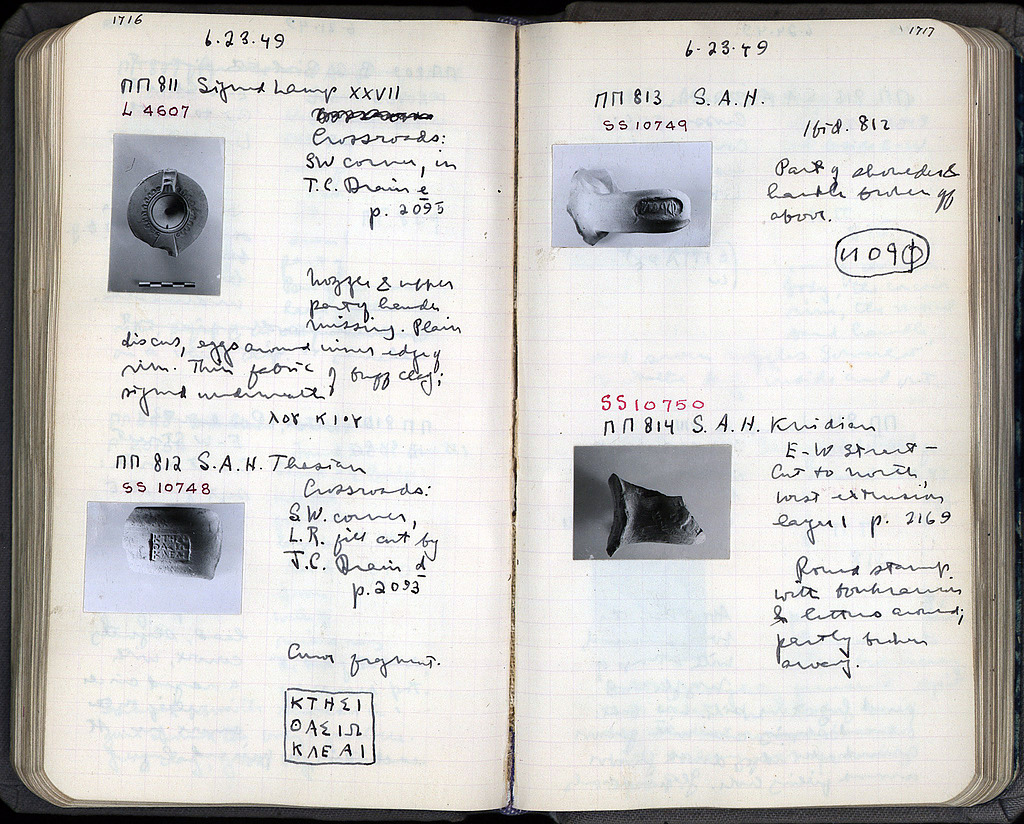 1716
6.23.49
ΠΠ 811 Signed Lamp XXVII
L 4607
Crossroads:
SW corner, in
T.C. Drain e
p. 2095
Nozzle & upper
part of handle
missing. Plain
discus, eggs around inner edge of
rim. Thin fabric of buff clay;
signed underneath
ΛΟΥ ΚΙΟΥ
ΠΠ 812 S.A.H. Thasian
SS 10748
Crossroads:
S.W. corner,
L.R. fill cut by
T.C. Drain d
p. 2093
Curved fragment.
ΚΤΗΣΙ
ΘΑΣΙΩ
ΚΛΕΑΙ
1717
6.23.49
ΠΠ 813 S.A.H.
SS 10749
Ibid. 812
Part of shoulder &
handle broken off
above.
ИΟ9Φ
SS 10750
ΠΠ 814 S.A.H. Knidian
E-W Street –
Cut to north,
west extension
layer 1 p. 2169
Round stamp
with boukranion
& letters around;
partly broken
away.